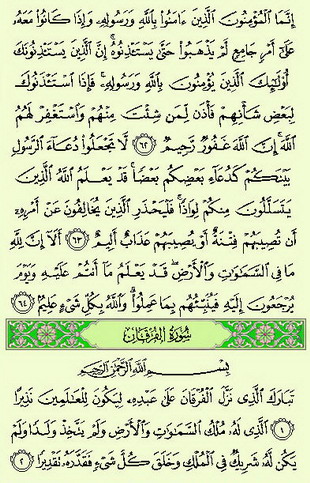 إِنَّمَا الْمُؤْمِنُونَ الَّذِينَ ءَامَنُوا بِاللَّهِ وَرَسُولِهِ وَإِذَا كَانُوا مَعَهُ
عَلَىٰ أَمْرٍ جَامِعٍ لَّمْ يَذْهَبُوا حَتَّىٰ يَسْتَـْٔذِنُوهُ ۚ إِنَّ الَّذِينَ يَسْتَـْٔذِنُونَكَ
أُولَـٰٓئِكَ الَّذِينَ يُؤْمِنُونَ بِاللَّهِ وَرَسُولِهِ ۚ فَإِذَا اسْتَـْٔذَنُوكَ
لِبَعْضِ شَأْنِهِمْ فَأْذَن لِّمَن شِئْتَ مِنْهُمْ وَاسْتَغْفِرْ لَهُمُ
اللَّهَ ۚ إِنَّ اللَّهَ غَفُورٌ رَّحِيمٌ ٦٢ لَّا تَجْعَلُوا دُعَاءَ الرَّسُولِ
بَيْنَكُمْ كَدُعَاءِ بَعْضِكُم بَعْضًا ۚ قَدْ يَعْلَمُ اللَّهُ الَّذِينَ
يَتَسَلَّلُونَ مِنكُمْ لِوَاذًا ۚ فَلْيَحْذَرِ الَّذِينَ يُخَالِفُونَ عَنْ أَمْرِهِ
أَن تُصِيبَهُمْ فِتْنَةٌ أَوْ يُصِيبَهُمْ عَذَابٌ أَلِيمٌ ٦٣ أَلَا إِنَّ لِلَّهِ
مَا فِي السَّمَـٰوَٰتِ وَالْأَرْضِ ۖ قَدْ يَعْلَمُ مَا أَنتُمْ عَلَيْهِ وَيَوْمَ
يُرْجَعُونَ إِلَيْهِ فَيُنَبِّئُهُم بِمَا عَمِلُوا ۗ وَاللَّهُ بِكُلِّ شَيْءٍ عَلِيمٌ ٦٤
سُورَةُ الْفُرْقَانِ
بِسْمِ اللَّهِ الرَّحْمَـٰنِ الرَّحِيمِ
تَبَارَكَ الَّذِي نَزَّلَ الْفُرْقَانَ عَلَىٰ عَبْدِهِ لِيَكُونَ لِلْعَـٰلَمِينَ نَذِيرًا
١ الَّذِي لَهُ مُلْكُ السَّمَـٰوَٰتِ وَالْأَرْضِ وَلَمْ يَتَّخِذْ وَلَدًا وَلَمْ
يَكُن لَّهُ شَرِيكٌ فِي الْمُلْكِ وَخَلَقَ كُلَّ شَيْءٍ فَقَدَّرَهُ تَقْدِيرًا ٢